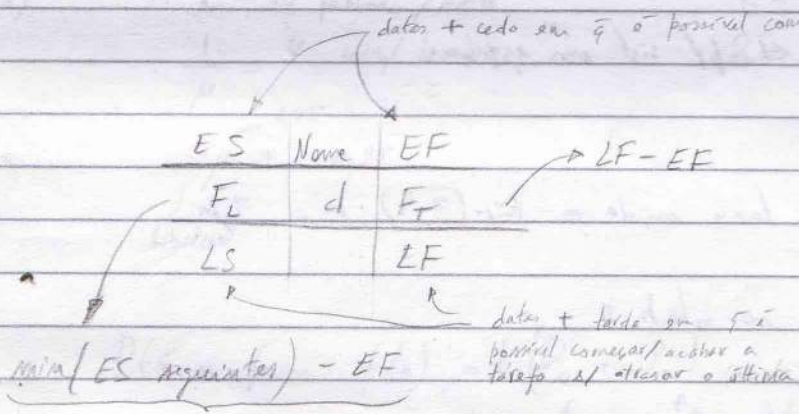 datas + cedo em q̄ é possível com
ES Nome EF
F_L d F_T LF - EF
LS LF
datas + tarde em q̄ é
possível começar/acabar a
tarefa s/ atrasar a última
min(ES seguintes) - EF